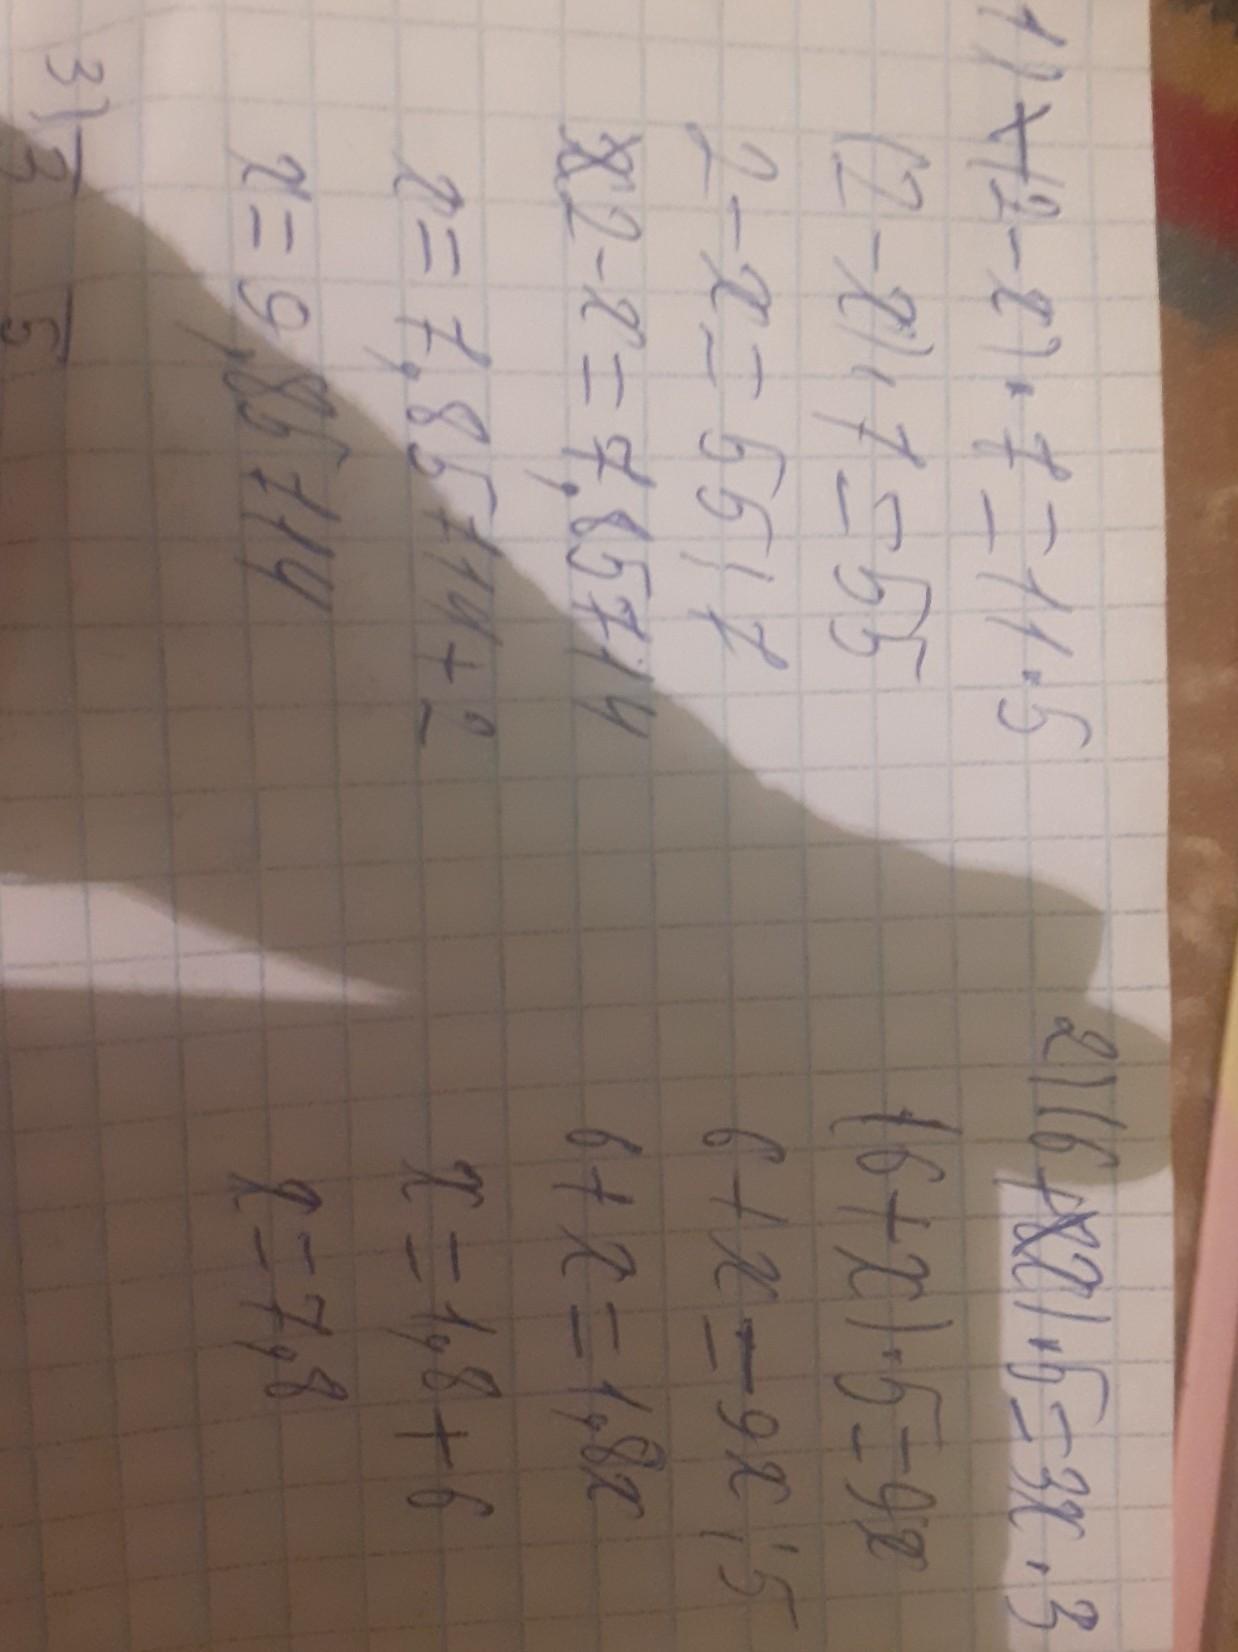 1) (2-x)·7=11·5
(2-x)·7=55
2-x=55:7
2-x=7,85714
x=7,85714+2
x=9,85714
3) 3 5
2) (6+x)·5=3x·3
(6+x)·5=9x
6+x=9x:5
6+x=1,8x
x=1,8+6
x=7,8